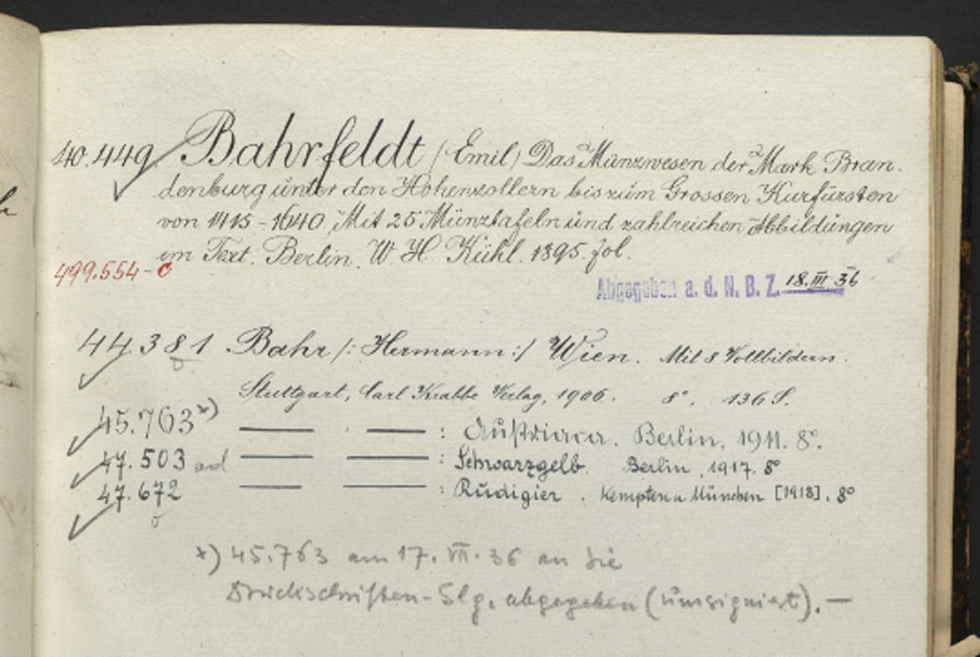 40.449 Bahrfeldt (Emil) Das Münzwesen der Mark Bran-
denburg unter den Hohenzollern bis zum Grossen Kurfürsten
von 1415-1640. Mit 25 Münztafeln und zahlreichen Abbildungen
im Text. Berlin. W. H. Kühl. 1895. fol.
499.554-C
Abgegeben a. d. N. B. Z. 18. III 36
44381 Bahr /: Hermann :/ Wien. Mit 8 Vollbildern.
Stuttgart, Carl Krabbe Verlag, 1906. 8°. 136 S.
45.763 *) — — : Austriaca. Berlin, 1911. 8°.
47.503 ad — — : Schwarzgelb. Berlin, 1917. 8°
47.672 — — : Rudigier. Kempten u. München [1918]. 8°
*) 45.763 am 17. VII. 36 an die
Druckschriften-Slg. abgegeben (umsigniert). —